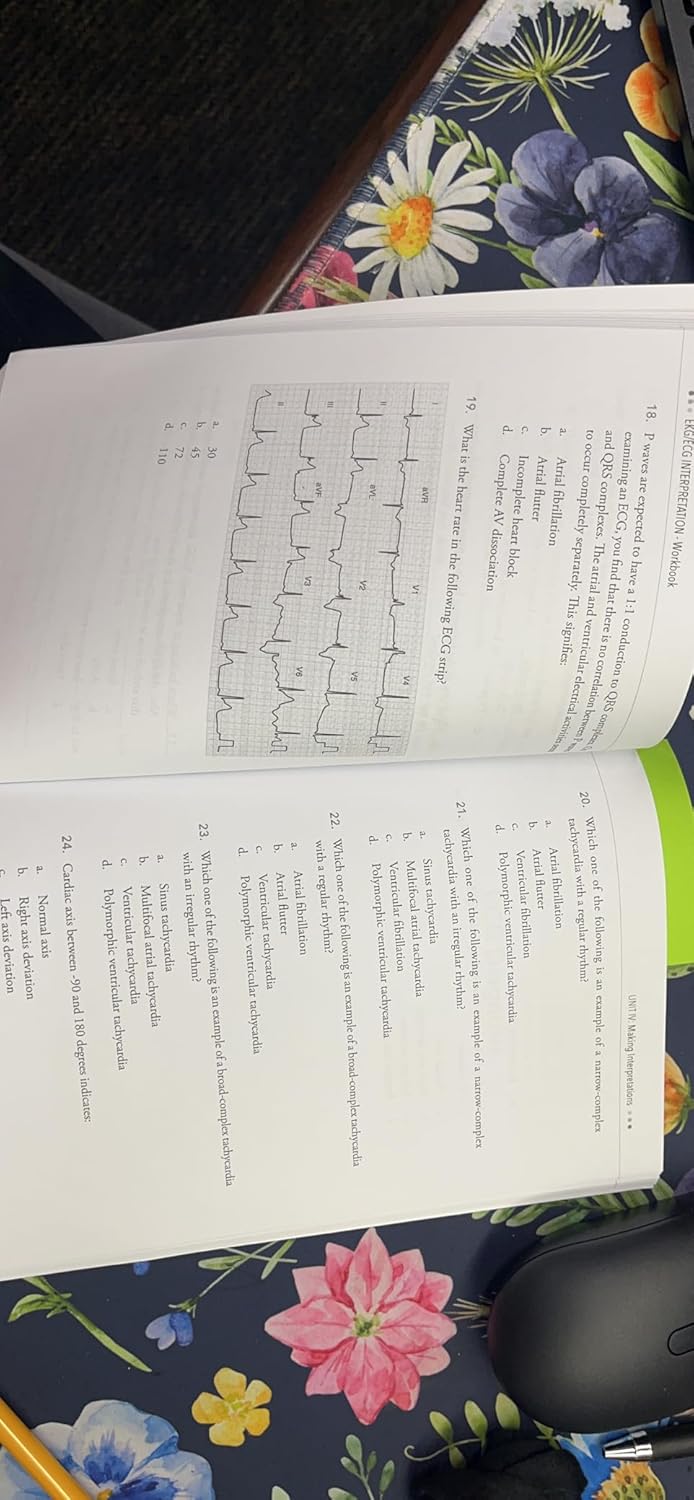 EKG/ECG INTERPRETATION - Workbook
18. P waves are expected to have a 1:1 conduction to QRS
examining an ECG, you find that there is no correlation between
and QRS complexes. The atrial and ventricular electrical activities
to occur completely separately. This signifies:
a. Atrial fibrillation
b. Atrial flutter
c. Incomplete heart block
d. Complete AV dissociation
19. What is the heart rate in the following ECG strip?
I aVR V1 V4
II aVL V2 V5
III aVF V3 V6
II
a. 30
b. 45
c. 72
d. 110
UNIT IV: Making Interpretations
20. Which one of the following is an example of a narrow-complex
tachycardia with a regular rhythm?
a. Atrial fibrillation
b. Atrial flutter
c. Ventricular fibrillation
d. Polymorphic ventricular tachycardia
21. Which one of the following is an example of a narrow-complex
tachycardia with an irregular rhythm?
a. Sinus tachycardia
b. Multifocal atrial tachycardia
c. Ventricular fibrillation
d. Polymorphic ventricular tachycardia
22. Which one of the following is an example of a broad-complex tachycardia
with a regular rhythm?
a. Atrial fibrillation
b. Atrial flutter
c. Ventricular tachycardia
d. Polymorphic ventricular tachycardia
23. Which one of the following is an example of a broad-complex tachycardia
with an irregular rhythm?
a. Sinus tachycardia
b. Multifocal atrial tachycardia
c. Ventricular tachycardia
d. Polymorphic ventricular tachycardia
24. Cardiac axis between -90 and 180 degrees indicates:
a. Normal axis
b. Right axis deviation
c. Left axis deviation